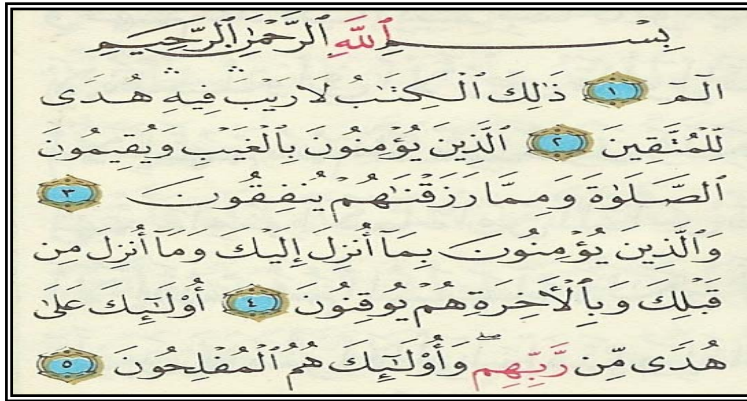 بِسْمِ اللَّهِ الرَّحْمَٰنِ الرَّحِيمِ
الٓمٓ ١ ذَٰلِكَ الْكِتَٰبُ لَا رَيْبَ ۛ فِيهِ ۛ هُدًى
لِّلْمُتَّقِينَ ٢ الَّذِينَ يُؤْمِنُونَ بِالْغَيْبِ وَيُقِيمُونَ
الصَّلَوٰةَ وَمِمَّا رَزَقْنَٰهُمْ يُنفِقُونَ ٣
وَالَّذِينَ يُؤْمِنُونَ بِمَآ أُنزِلَ إِلَيْكَ وَمَآ أُنزِلَ مِن
قَبْلِكَ وَبِالْأَخِرَةِ هُمْ يُوقِنُونَ ٤ أُوْلَٰٓئِكَ عَلَىٰ
هُدًى مِّن رَّبِّهِمْ ۖ وَأُوْلَٰٓئِكَ هُمُ الْمُفْلِحُونَ ٥